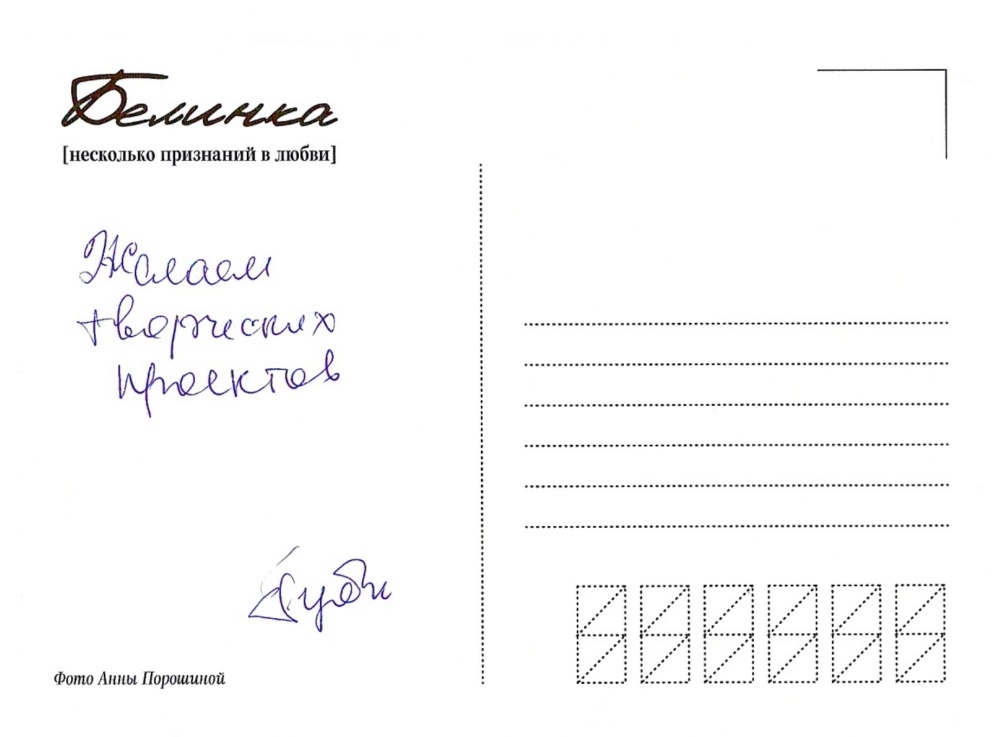 Белинка
[несколько признаний в любви]
Желаем
творческих
проектов
Фото Анны Порошиной